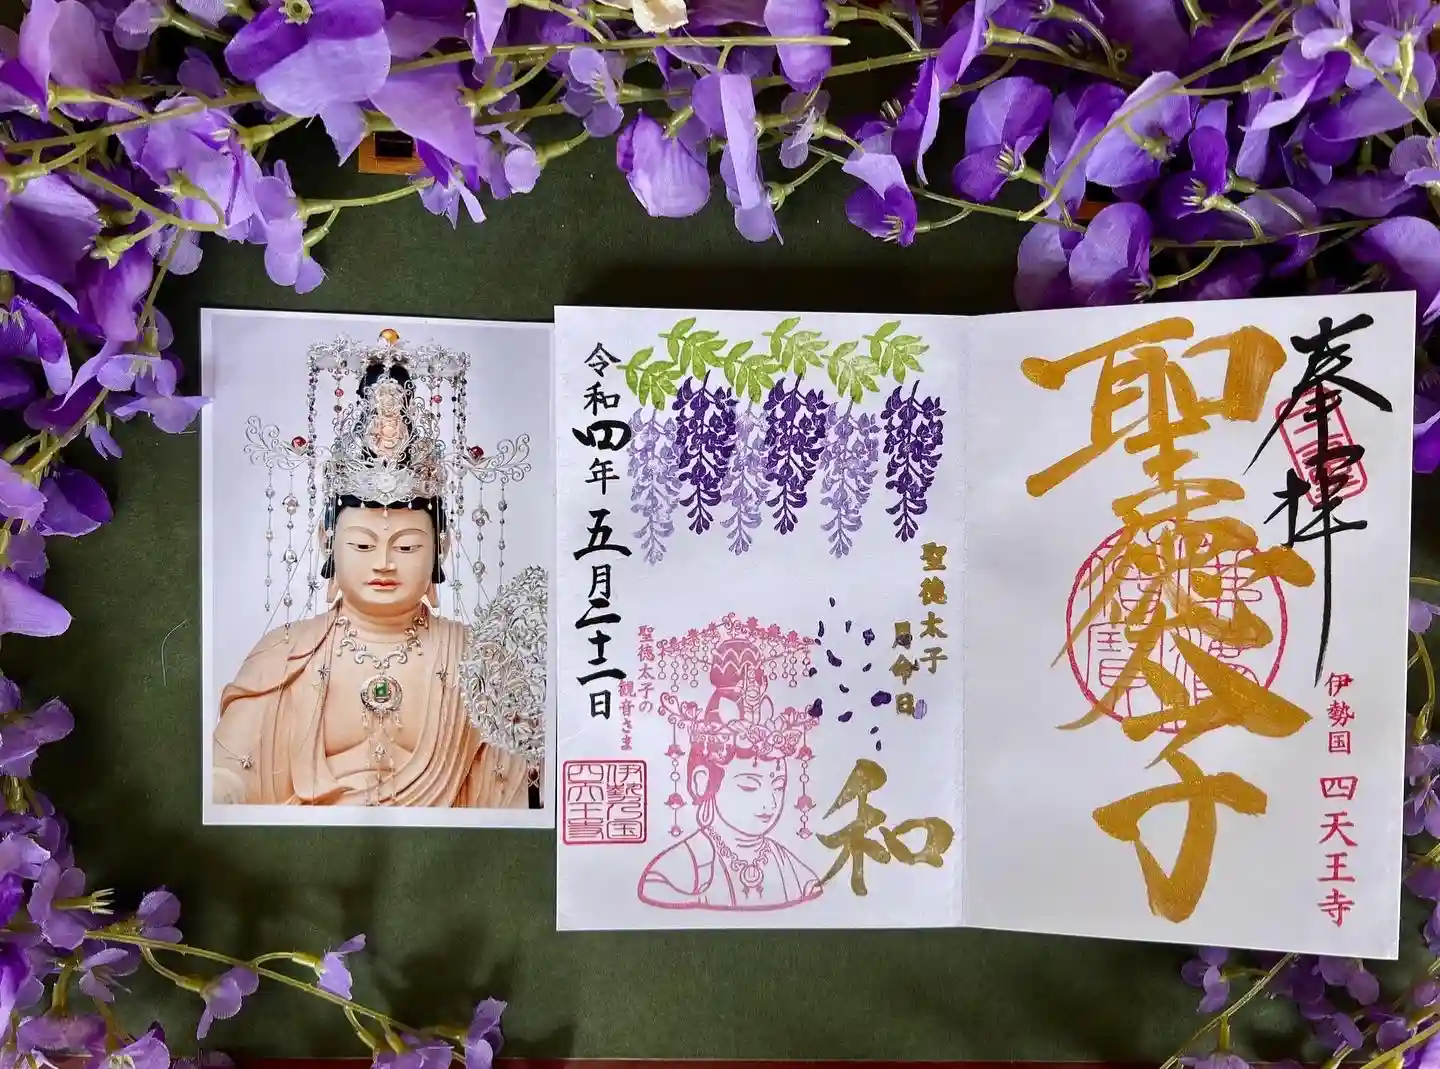 奉拝
聖徳太子
伊勢国 四天王寺
聖徳太子
月命日
和
令和四年五月二十二日
聖徳太子の
観音さま
伊勢国
四天王寺